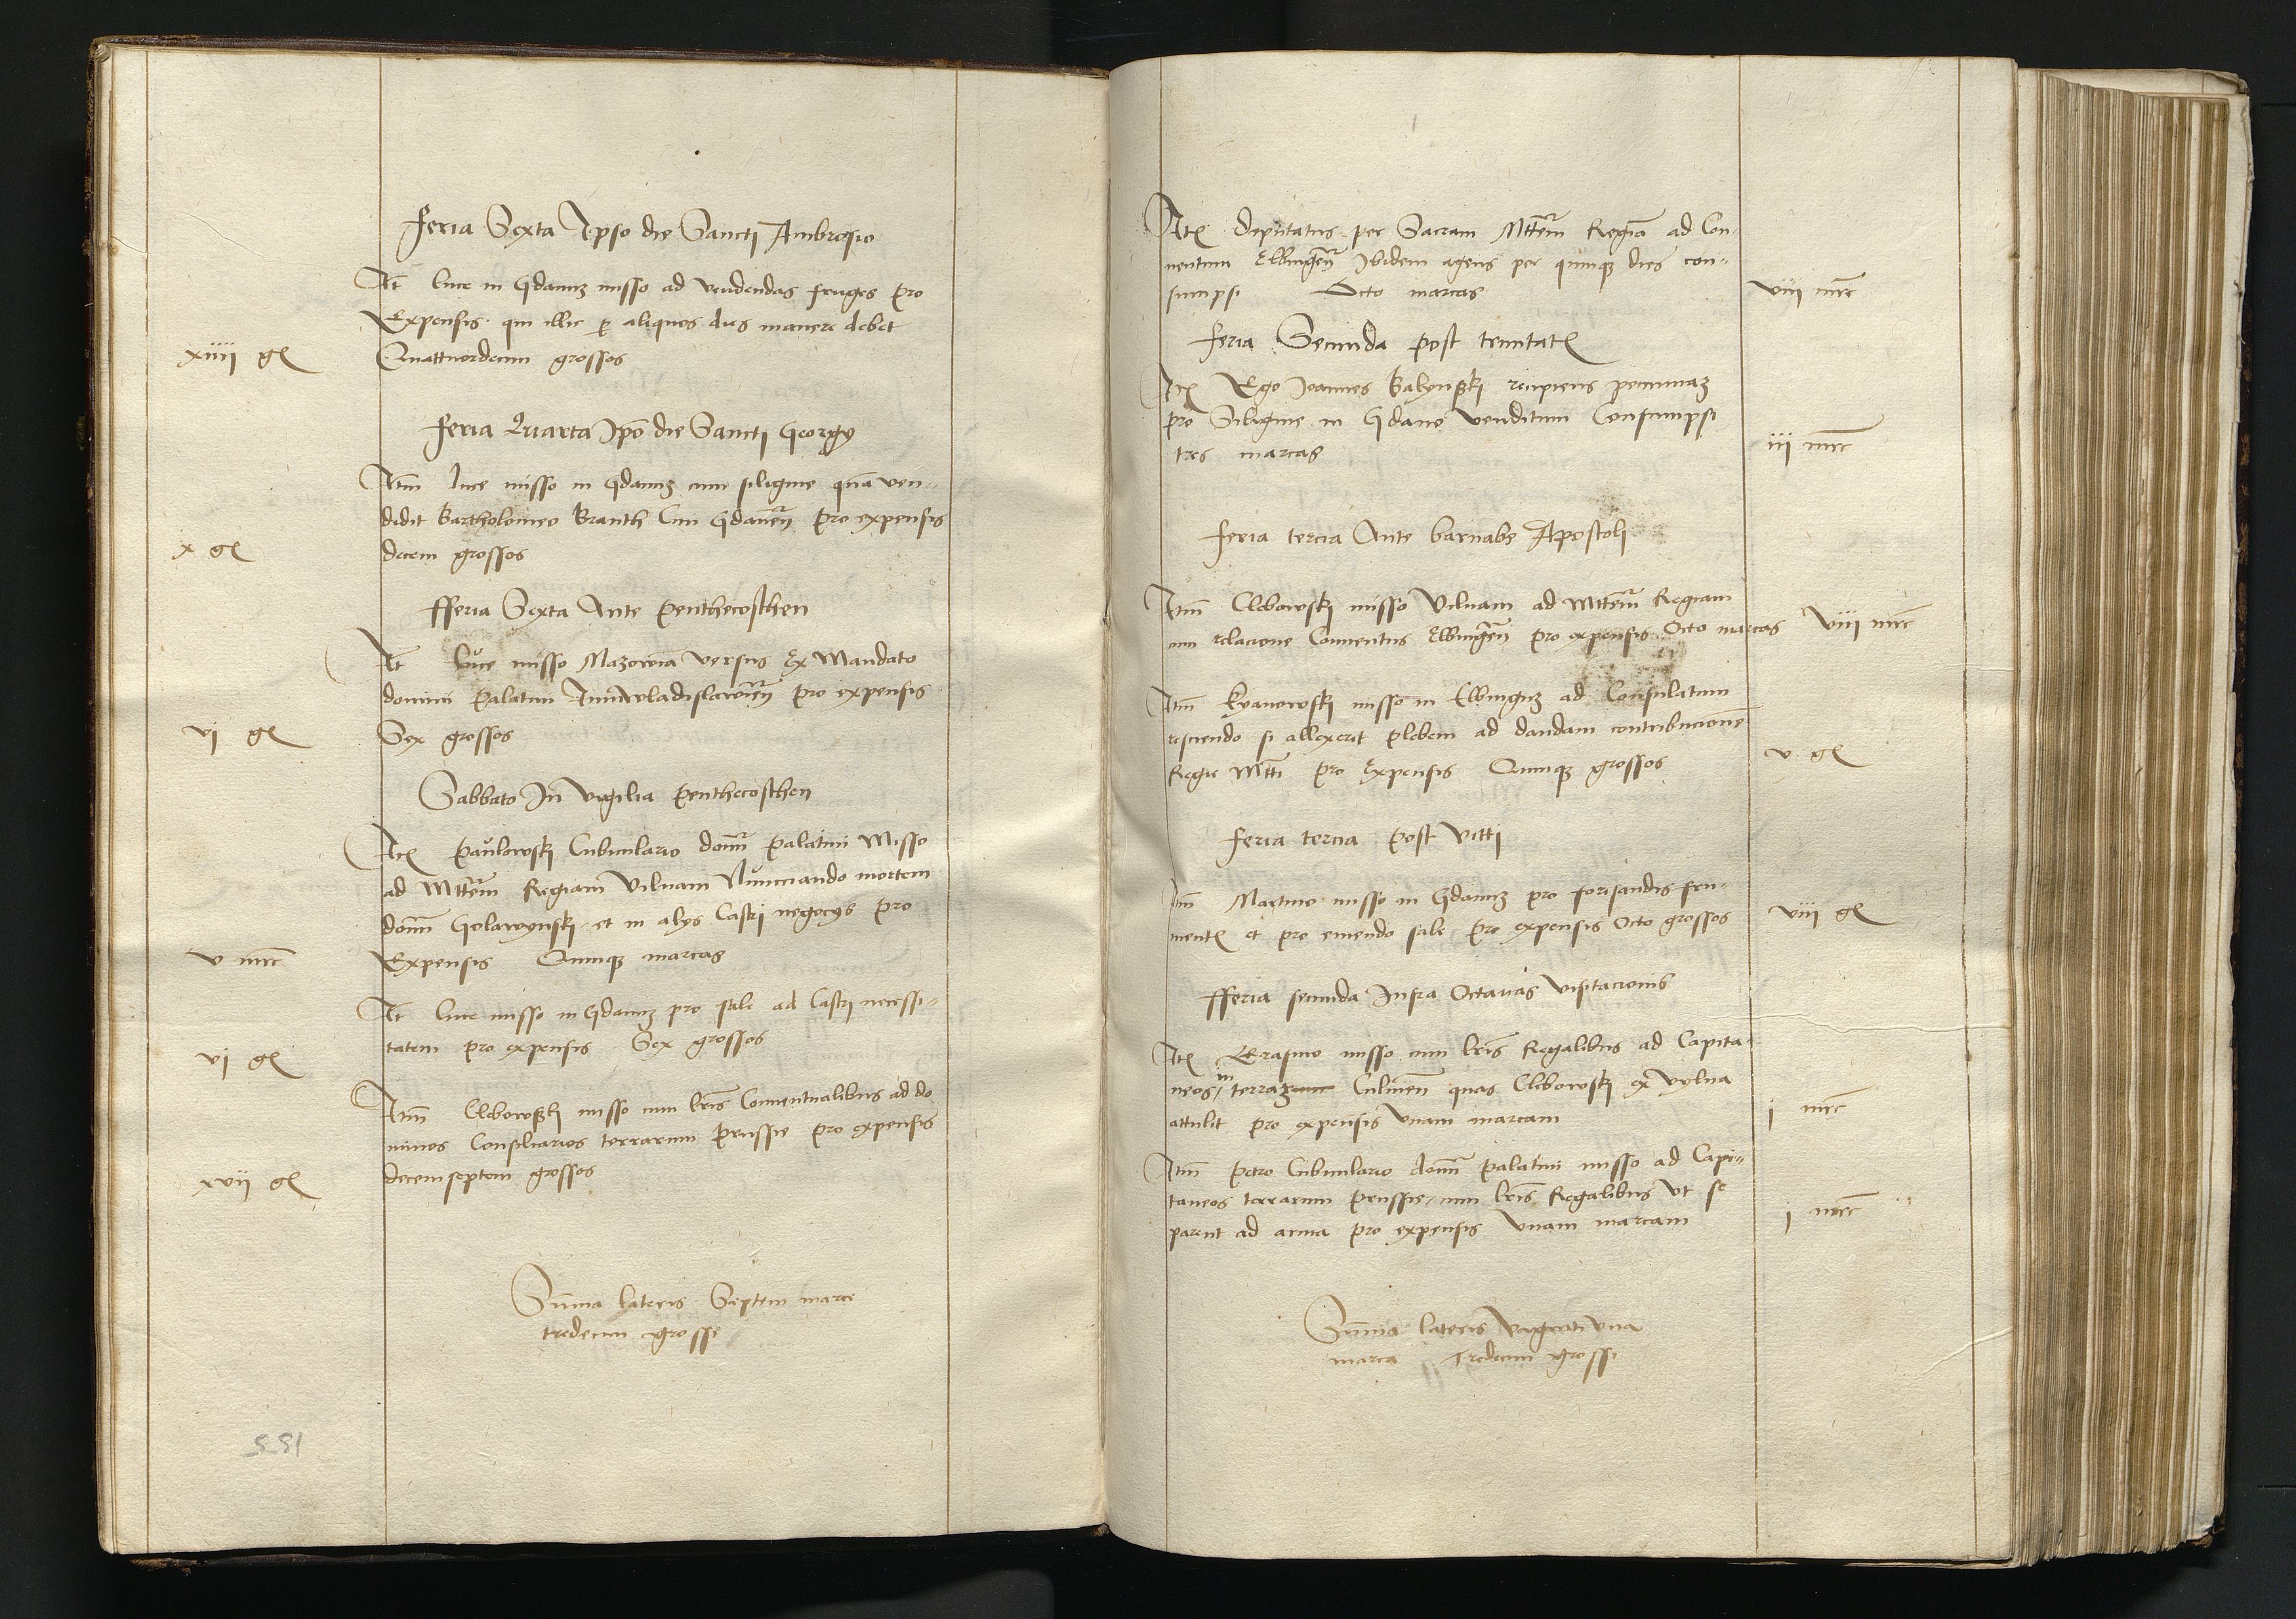 Feria Sexta Ipso die Sancti Ambrosio
It Luce in Gdanczƺ misso ad vendendas fruges pro
Expensis qui illic p aliquos dies manere debet
xiiii gͬ Quattuordecim grossos
Feria Quarta Ipō die Sancti Georgy
Itm̄ Luce misso in Gdanczƺ cum siligine quā ven-
didit Bartholomeo Branth Civi Gdanen̄ pro expensis
x gͬ decem grossos
fferia Sexta Ante penthecosthen
It Luce misso Mazowiā versus Ex Mandato
domini palatini Iuniwladislawien̄ pro expensis
vj gͬ Sex grossos
Sabbato In vigilia penthecosthen
Itͬ pawlowskj Cubiculario domī palatini Misso
ad Mttem̄ Regiam Vilnam Nunciando mortem
domī Golawynskj et in alys Castri negocys pro
v mrc Expensis Quinqƺ marcas
It Luce misso in Gdanczƺ pro sale ad Castri necessi-
vj gͬ tatem pro expensis Sex grossos
Itm̄ Clebowsskj misso cum lrīs Conventualibus ad do
minos Consiliarios terrarum prussie pro expensis
xvii gͬ decemseptem grossos
Sum̄a lateris Septem marce
tredecim grossi
155
Itͬ deputatus per Sacram Mttem̄ Regiā ad Con-
uentum Elbingen̄ Ibidem agens per quinqƺ dies con-
sumpsi Octo marcas viii mrc
Feria Secunda post trinitatͬ
Itͬ Ego Joannes Balynsskj recipiens pecuniaƺ
pro Siligine in Gdano venditum Consumpsi
tres marcas iii mrc
Feria tercia Ante barnabe Apostolj
Itm̄ Clebowskj misso Vilnam ad Mttem̄ Regiam
cum relacione Conuentus Elbingen̄ pro expensis Octo marcas viii mrc
Itm̄ Kyanowskj misso in Elbingƺ ad Consulatum
resciendo si allexerit plebem ad dandam contribucionē
Regie Mtti pro Expensis Quinqƺ grossos v gͬ
Feria tercia post vitti
Itm̄ Martino misso in Gdanczƺ pro forisandis fru-
mentͬ et pro emendo sale pro expensis Octo grossos viii gͬ
fferia secunda Infra Octauas visitacionis
Itͬ Erasmo misso cum lrīs Regalibus ad Capita-
neos in terra Culmen̄ quas Clebowskj ex vylna
attulit pro expensis vnam marcam i mrc
Itm̄ petro Cubiculario domī palatini misso ad Capi-
taneos terrarum prussie cum lrīs Regalibus vt se
parent ad arma pro expensis vnam marcam j mrc
Sum̄a lateris viginti vna
marca Tredecim grossi